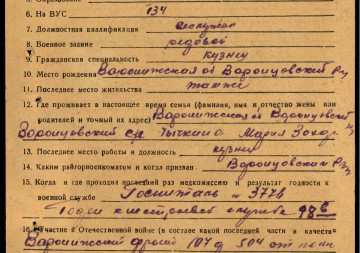 6. На ВУС 134
7. Должностная квалификация
8. Военное звание рядовой
9. Гражданская специальность кузнец
10. Место рождения Воронежская об Воронцовский р-н
11. Последнее место жительства там же
12. Где проживает в настоящее время семья (фамилия, имя и отчество жены или
родителей и точный их адрес) Воронежская об Воронцовский
Воронцовский с/с Мария Захар
13. Последнее место работы и должность кузнец
14. Каким райгорвоенкоматом и когда призван Воронцовский
15. Когда и где проходил последний раз медкомиссию и результат годности к
военной службе Госпиталь № 3778
Годен к нестроевой службе
16. Участие в Отечественной войне (в составе какой последней части и в качестве
Воронежский фронт 107 д 504